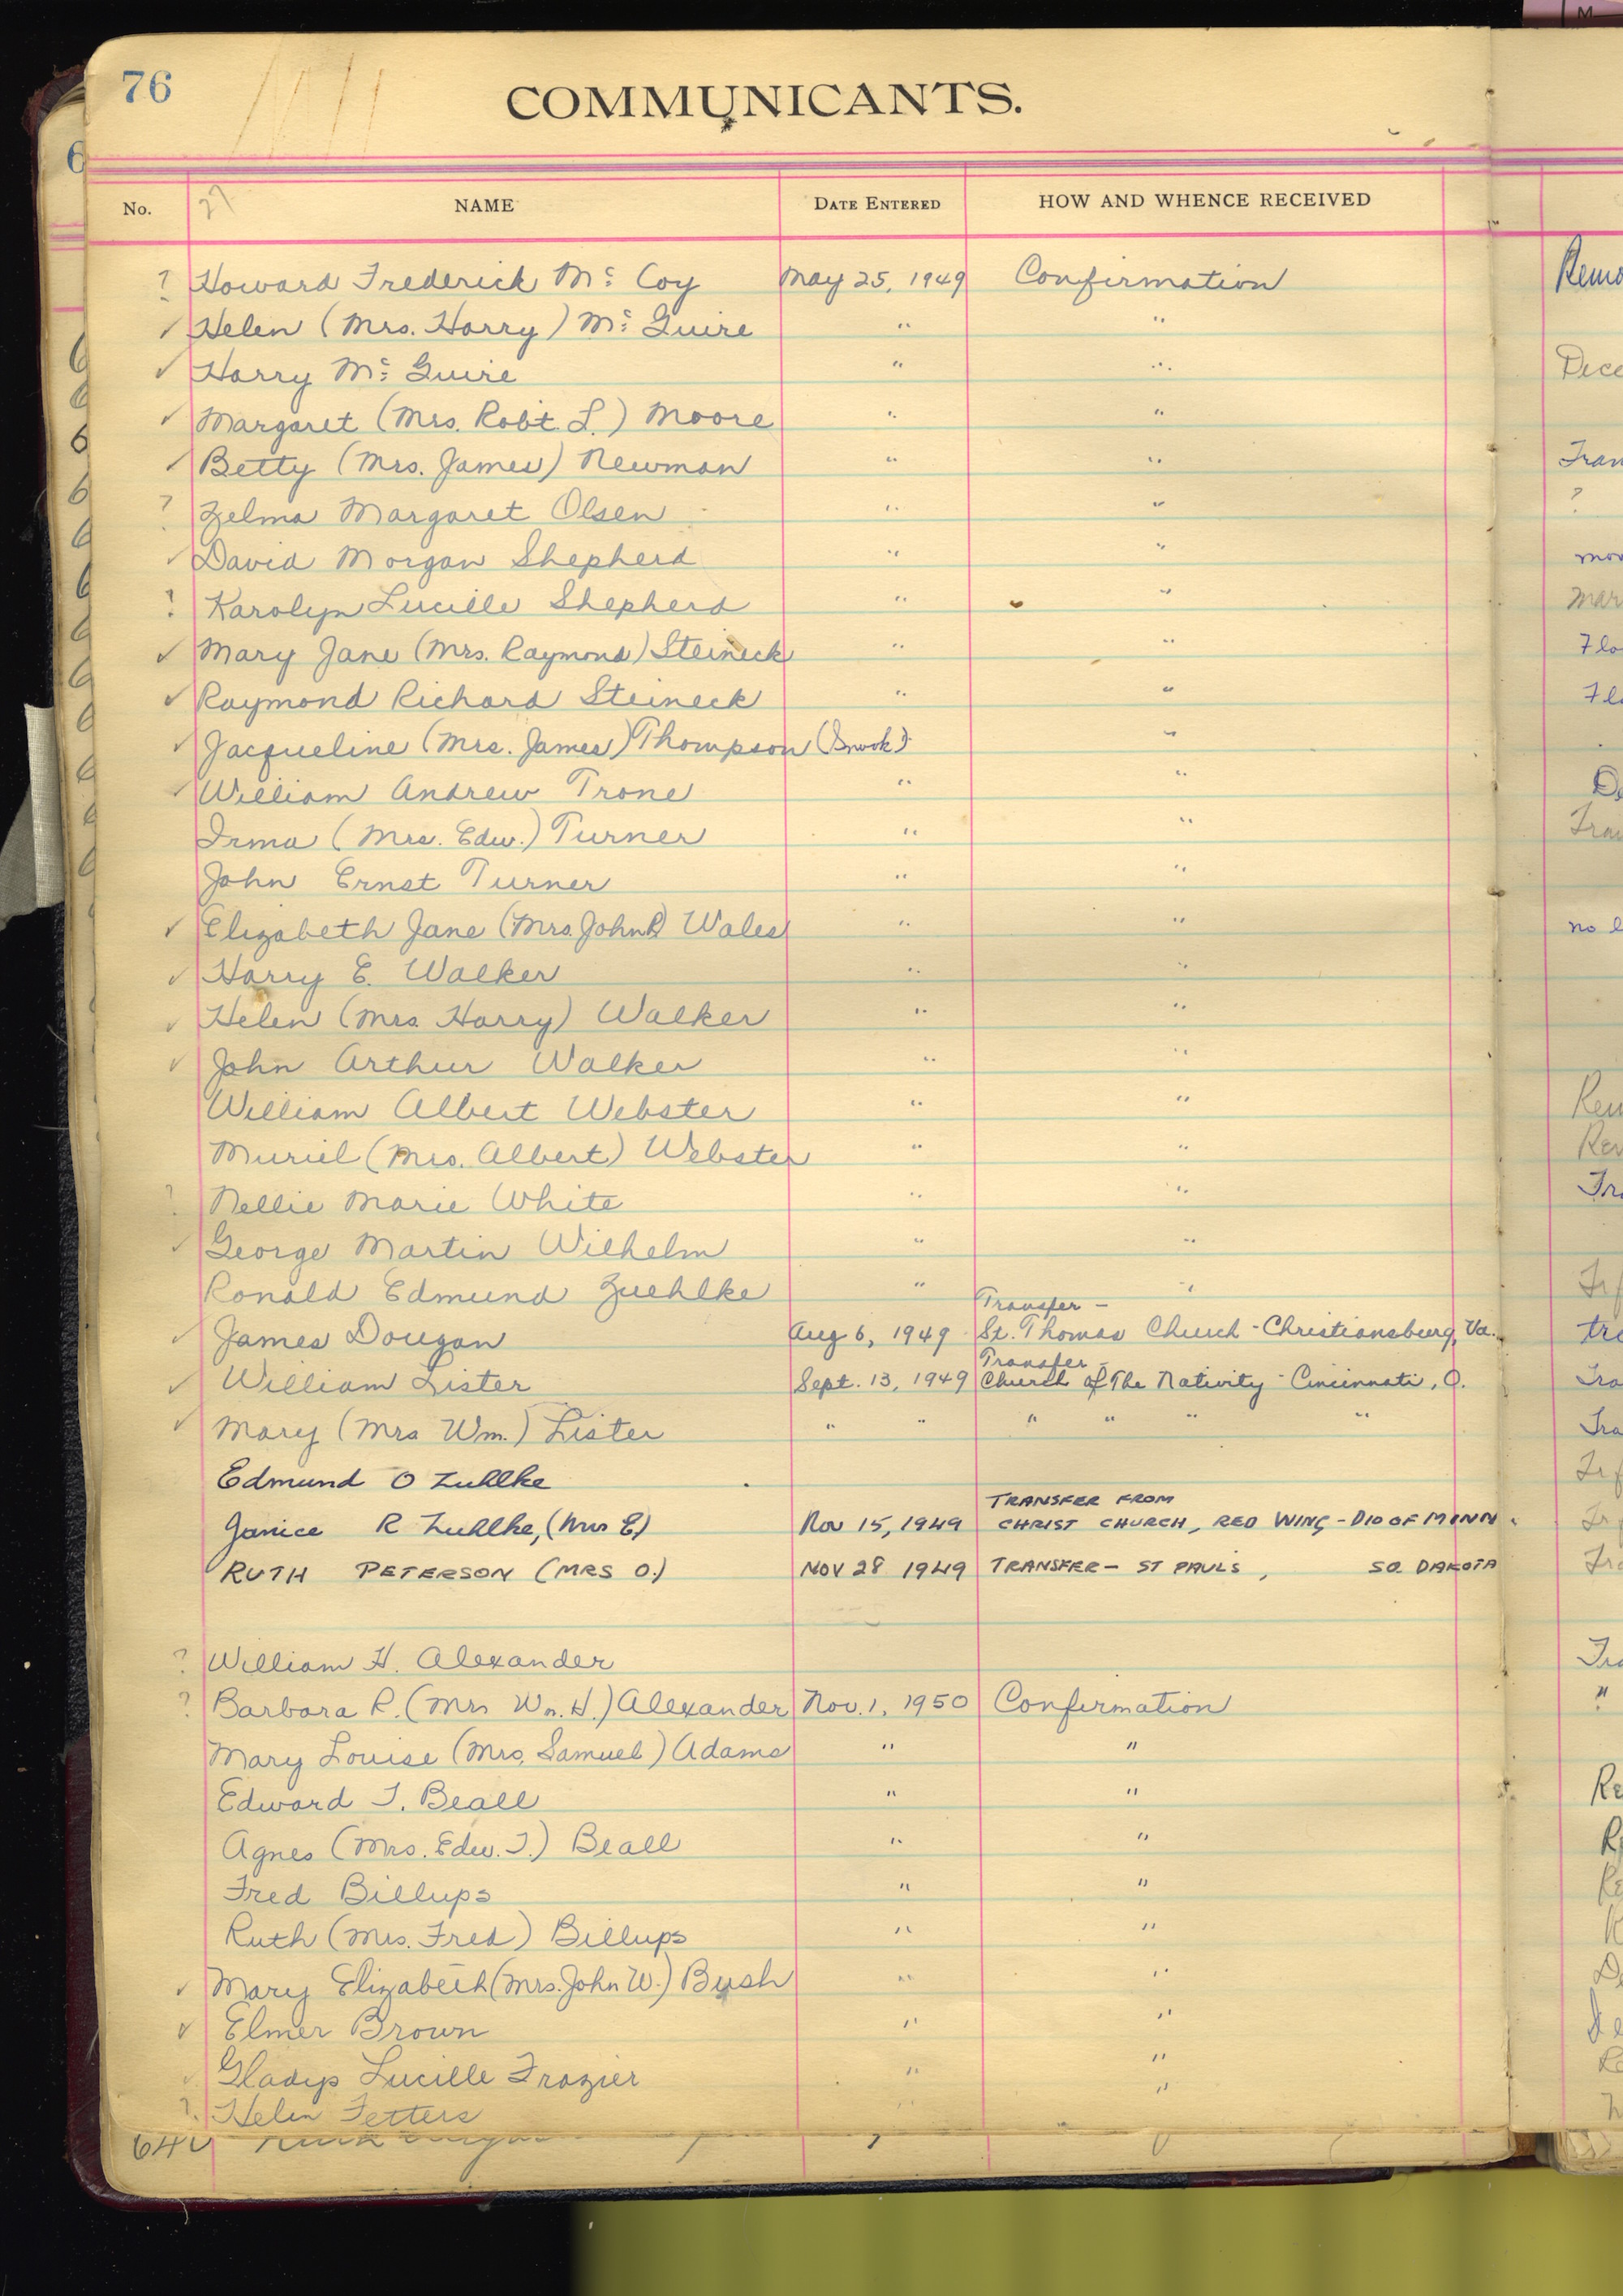 76
COMMUNICANTS.
27
No. NAME DATE ENTERED HOW AND WHENCE RECEIVED
? Howard Frederick Mc Coy May 25, 1949 Confirmation Remo
✓ Helen (Mrs. Harry) Mc Guire " "
✓ Harry Mc Guire " " Dece
✓ Margaret (Mrs. Robt. L.) Moore " "
✓ Betty (Mrs. James) Newman " " Tran
? Zelma Margaret Olsen " " ?
✓ David Morgan Shepherd " " mov
? Karolyn Lucille Shepherd " " Mar
✓ Mary Jane (Mrs. Raymond) Steineck " " Flo
✓ Raymond Richard Steineck " " Flo
✓ Jacqueline (Mrs. James) Thompson "
✓ William Andrew Trone " " De
Irma (Mrs. Edw.) Turner " " Tran
John Ernst Turner " "
✓ Elizabeth Jane (Mrs. John R) Wales " " no l
✓ Harry E. Walker " "
✓ Helen (Mrs Harry) Walker " "
✓ John Arthur Walker " "
William Albert Webster " " Rem
Muriel (Mrs. Albert) Webster " " Rem
? Nellie Marie White " " Tra
✓ George Martin Wilhelm " "
Ronald Edmund Zuehlke " " Trf
Transfer -
✓ James Dougan Aug 6, 1949 St. Thomas Church - Christiansburg, Va. tra
Transfer -
✓ William Lister Sept. 13, 1949 Church of The Nativity - Cincinnati, O. Tra
✓ Mary (Mrs Wm.) Lister " " " " " " Tra
Edmund O Zuhlke Trf
TRANSFER FROM
Janice R Zuhlke, (Mrs E) Nov 15, 1949 CHRIST CHURCH, RED WING - DIO OF MINN. Trf
RUTH PETERSON (MRS O.) NOV 28 1949 TRANSFER - ST PAULS, SO. DAKOTA Tra
? William H. Alexander Tra
? Barbara R. (Mrs Wm. H.) Alexander Nov. 1, 1950 Confirmation "
Mary Louise (Mrs. Samuel) Adams " "
Edward T. Beall " " Re
Agnes (Mrs. Edw. T.) Beall " " R
Fred Billups " " Re
Ruth (Mrs. Fred) Billups " " R
✓ Mary Elizabeth (Mrs. John W.) Bush " " D
✓ Elmer Brown " " De
✓ Gladys Lucille Frazier " " Re
? Helen Fetters " "
640